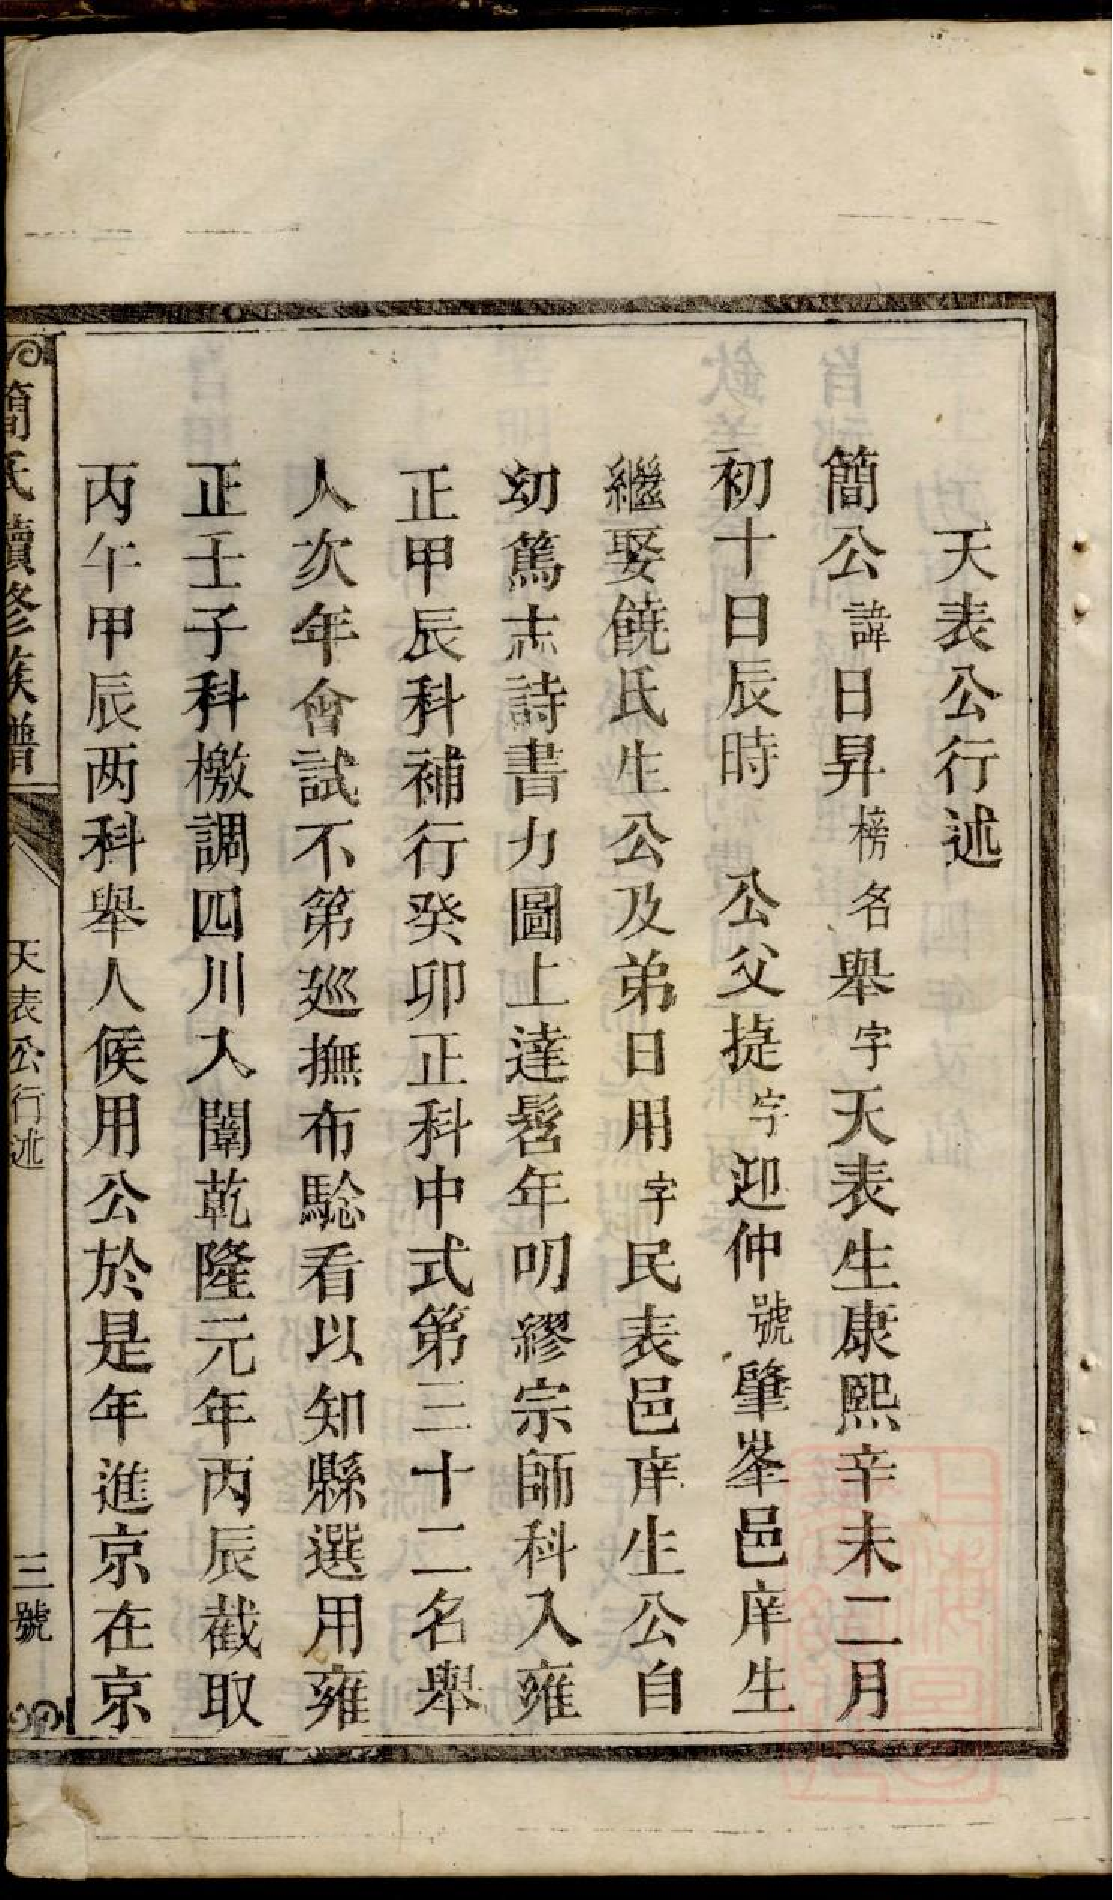 天表公行述
簡公諱日昇榜名舉字天表生康熙辛未二月
初十日辰時　公父㨗字迎仲號肇峯邑庠生
繼娶饒氏生公及弟日用字民表邑庠生公自
幼篤志詩書力圖上達髫年叨繆宗師科入雍
正甲辰科補行癸卯正科中式第三十二名舉
人次年會試不第廵撫布驗看以知縣選用雍
正壬子科檄調四川入闈乾隆元年丙辰截取
丙午甲辰两科舉人候用公於是年進京在京
簡氏續修族譜
天表公行述
三號